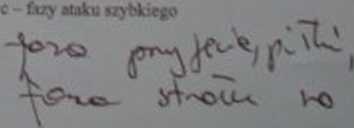 c – fazy ataku szybkiego
faza przyjęcie, piłki,
faza